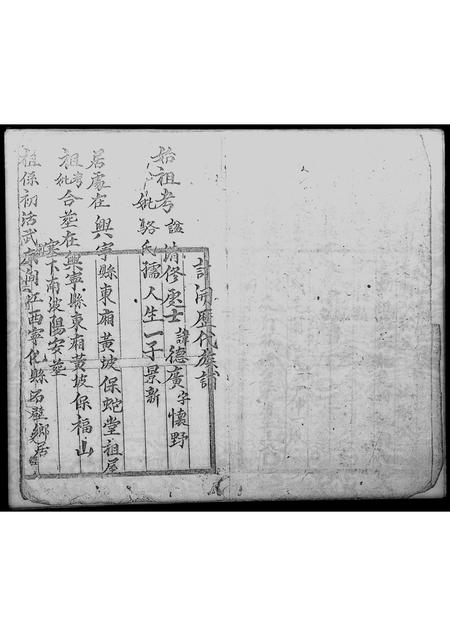 訂河歷代族譜
始祖考諡清修處士諱德廣字懷野
妣駱氏孺人生一子景新
居處在興寧縣東廂黃坡保蛇堂祖屋
祖考妣合塟在興寧縣東廂黃坡保福山
寨下南波陽安塟
祖係初洪武末間江西寧化縣石壁鄉居